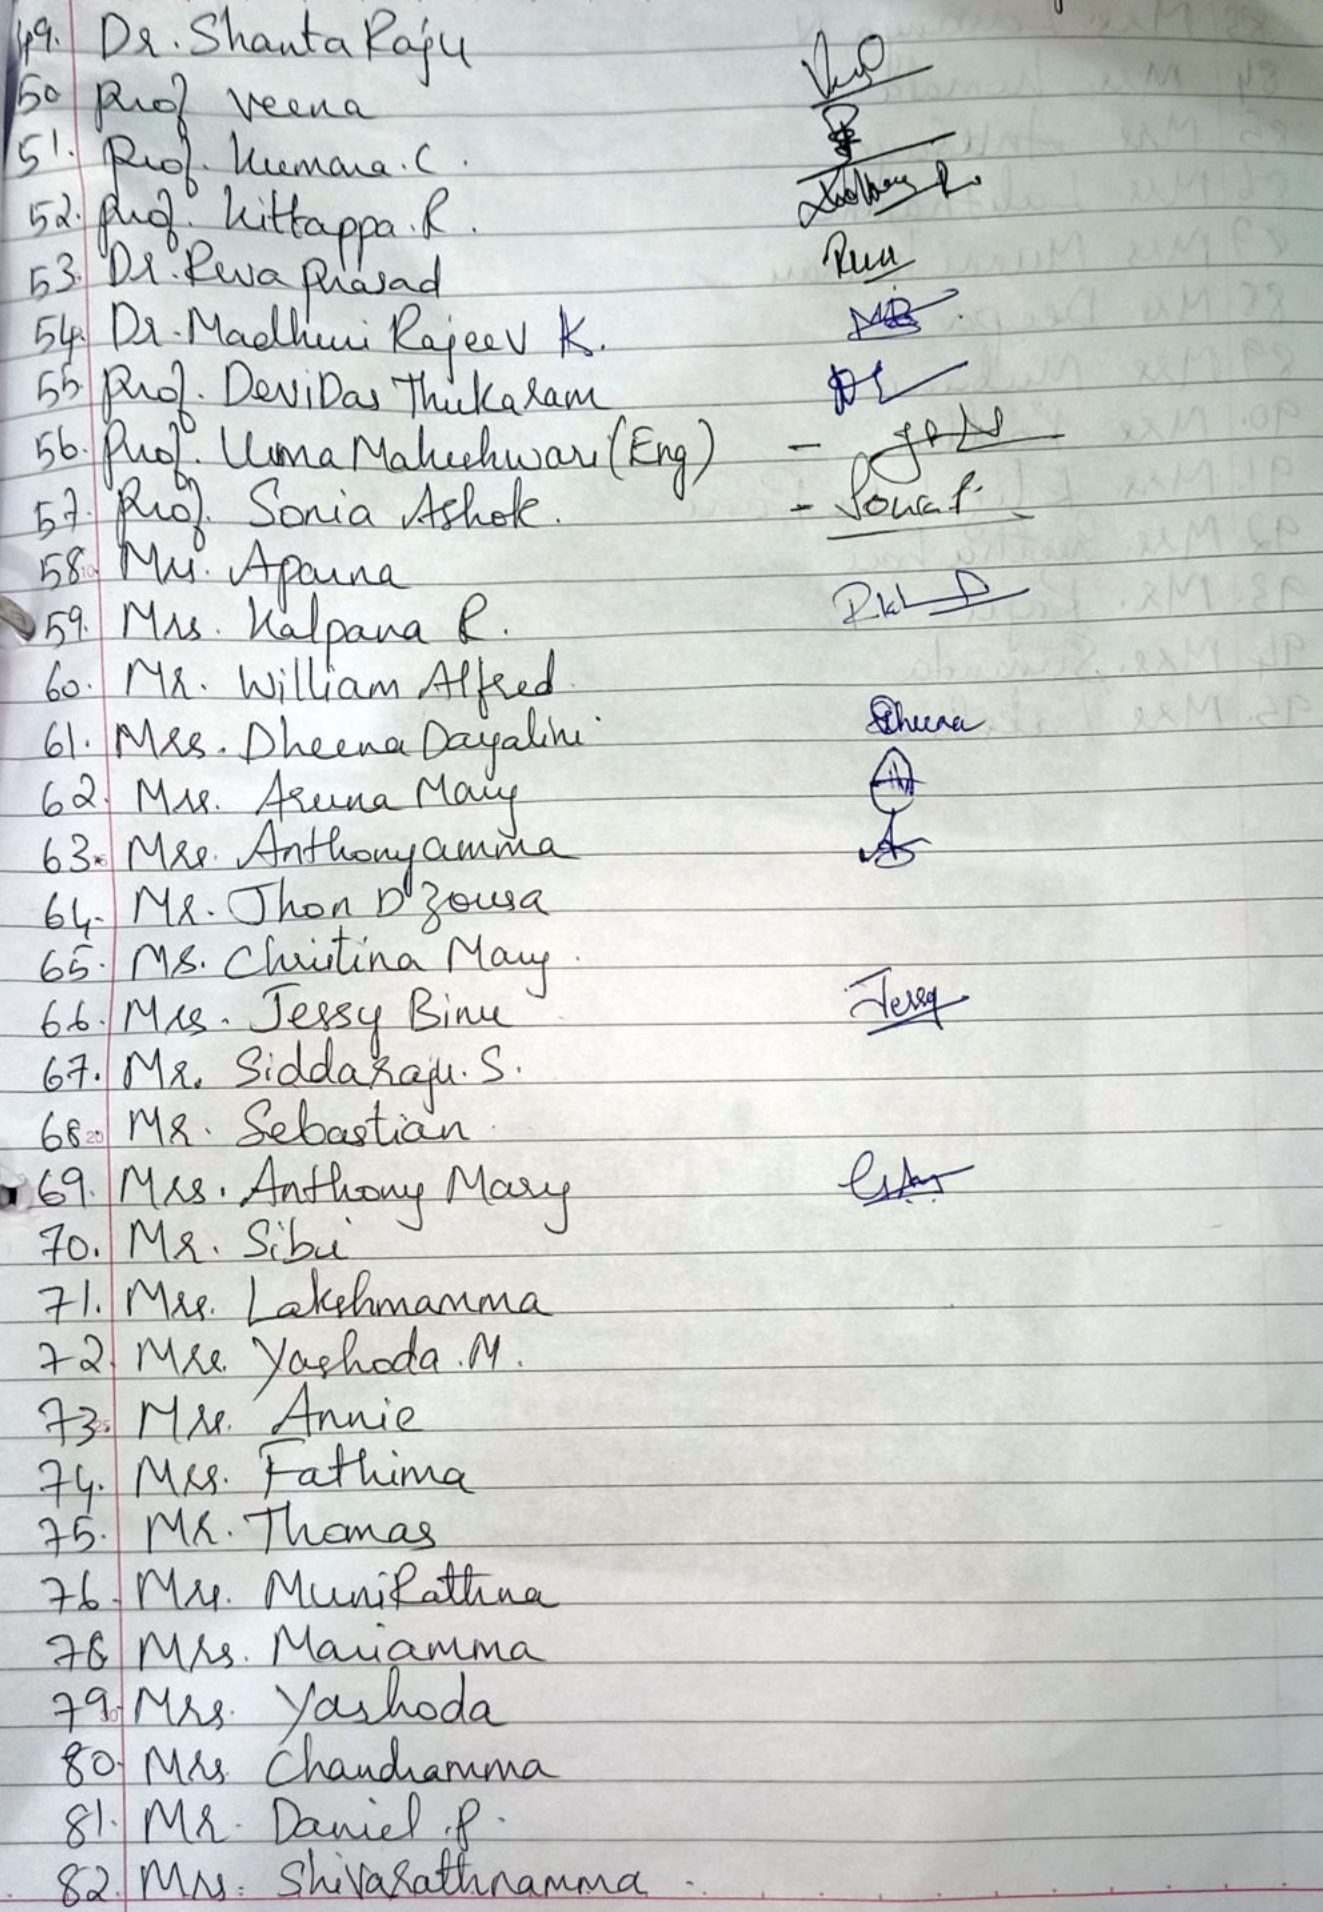 49. Dr. Shanta Raju
50 Prof Veena
51. Prof. Kumara. C.
52. Prof. Kittappa. R.
53. Dr. Reva Prasad Reva
54. Dr. Madhuri Rajeev K.
55. Prof. DeviDas Thukaram
56. Prof. Uma Maheshwari (Eng) -
57. Prof. Sonia Ashok. -
58. Mrs. Aparna
59. Mrs. Kalpana R.
60. Mr. William Alfred.
61. Mrs. Dheena Dayalini Dheena
62. Mrs. Aruna Mary
63. Mrs. Anthonyamma
64. Mr. Jhon D'Zousa
65. Ms. Christina Mary.
66. Mrs. Jessy Binu Jessy
67. Mr. Siddaraju. S.
68. Mr. Sebastian.
69. Mrs. Anthony Mary
70. Mr. Sibu
71. Mrs. Lakshmamma
72. Mrs. Yashoda. M.
73. Mrs. Annie
74. Mrs. Fathima
75. Mr. Thomas
76. Mrs. MuniRathna
78 Mrs. Mariamma
79. Mrs. Yashoda
80. Mrs Chandramma
81. Mr. Daniel. P.
82. Mrs. Shivarathnamma.